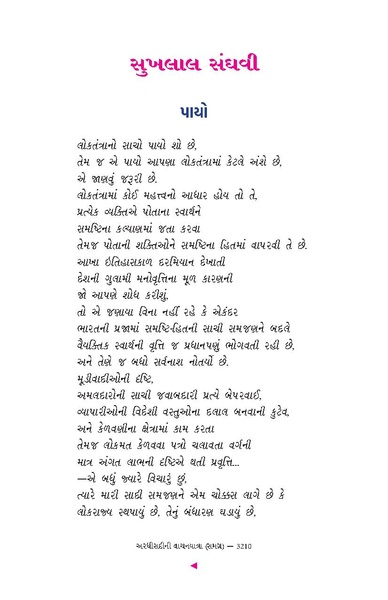 સુખલાલ સંઘવી
પાયો
લોકતંત્રનો સાચો પાયો શો છે,
તેમ જ એ પાયો આપણા લોકતંત્રમાં કેટલે અંશે છે,
એ જાણવું જરૂરી છે.
લોકતંત્રમાં કોઈ મહત્ત્વનો આધાર હોય તો તે,
પ્રત્યેક વ્યક્તિએ પોતાના સ્વાર્થને
સમષ્ટિના કલ્યાણમાં જતા કરવા
તેમજ પોતાની શક્તિઓને સમષ્ટિના હિતમાં વાપરવી તે છે.
આખા ઇતિહાસકાળ દરમિયાન દેખાતી
દેશની ગુલામી મનોવૃત્તિના મૂળ કારણની
જો આપણે શોધ કરીશું,
તો એ જણાયા વિના નહીં રહે કે એકંદર
ભારતની પ્રજામાં સમષ્ટિ-હિતની સાચી સમજણને બદલે
વૈયક્તિક સ્વાર્થની વૃત્તિ જ પ્રધાનપણું ભોગવતી રહી છે,
અને તેણે જ બધો સર્વનાશ નોતર્યો છે.
મૂડીવાદીઓની દૃષ્ટિ,
અમલદારોની સાચી જવાબદારી પ્રત્યે બેપરવાઈ,
વ્યાપારીઓની વિદેશી વસ્તુઓના દલાલ બનવાની કુટેવ,
અને કેળવણીના ક્ષેત્રામાં કામ કરતા
તેમજ લોકમત કેળવવા પત્રો ચલાવતા વર્ગની
માત્ર અંગત લાભની દૃષ્ટિએ થતી પ્રવૃત્તિ...
—એ બધું જ્યારે વિચારું છું,
ત્યારે મારી સાદી સમજણને એમ ચોક્કસ લાગે છે કે
લોકરાજ્ય સ્થપાયું છે, તેનું બંધારણ ઘડાયું છે,
અરધીસદીની વાચનયાત્રા (સમગ્ર) — 3210